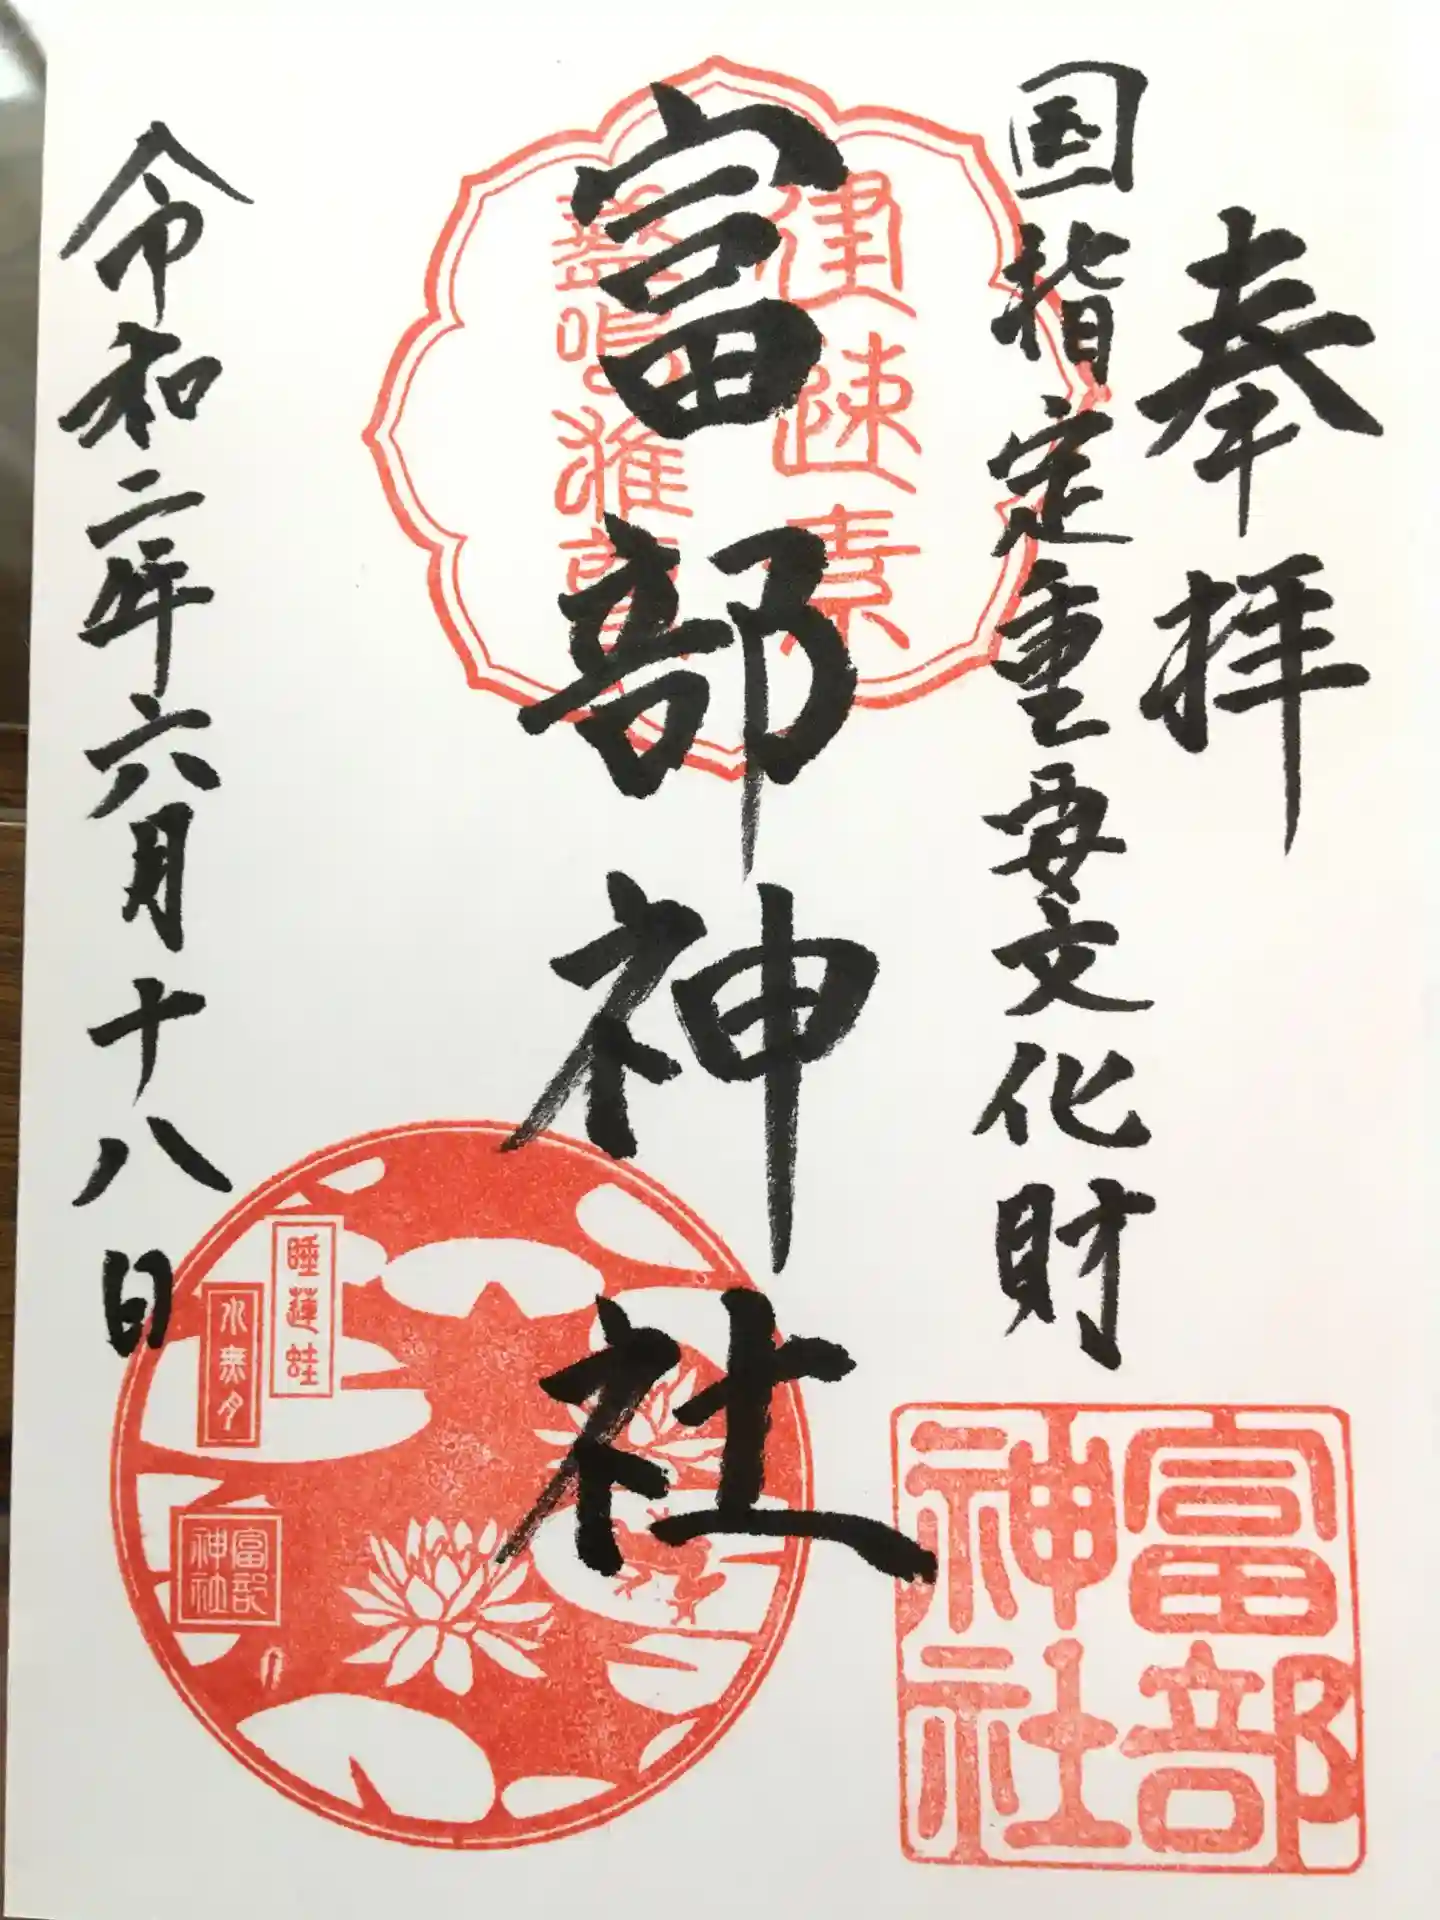 奉拝
国指定重要文化財
建速素
盞嗚雅尊
富部神社
令和二年六月十八日
睡蓮蛙
水無月
富部
神社
富部
神社